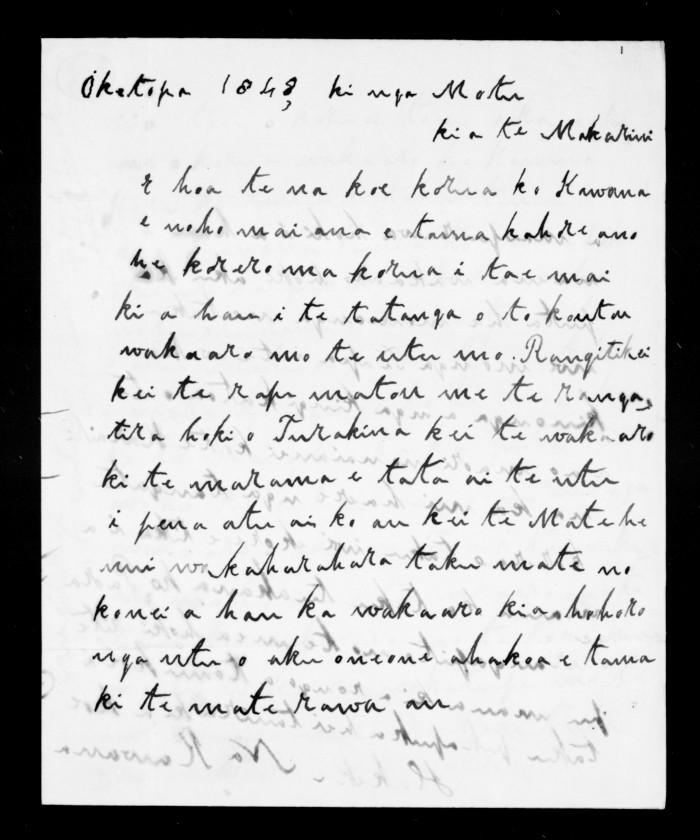 Oketopa 1848, ki nga Motu
kia te Makarini
E hoa te na koe korua ko Kawana
e noho mai ana e tama kahore ano
he korero ma korua i tae mai
ki a hau i te tatanga o to koutou
wakaaro mo te utu mo Rangitikei
kei te rapu matou me te ranga
tira hoki o Turakina kei te wakaaro
ki te marama e tata ai te utu
i pena atu ai ko au kei te Mate he
nui wakaharahara taku mate no
konei a hau ka wakaaro kia hohoro
nga utu o aku oneone ahakoa e tama
ki te mate rawa au